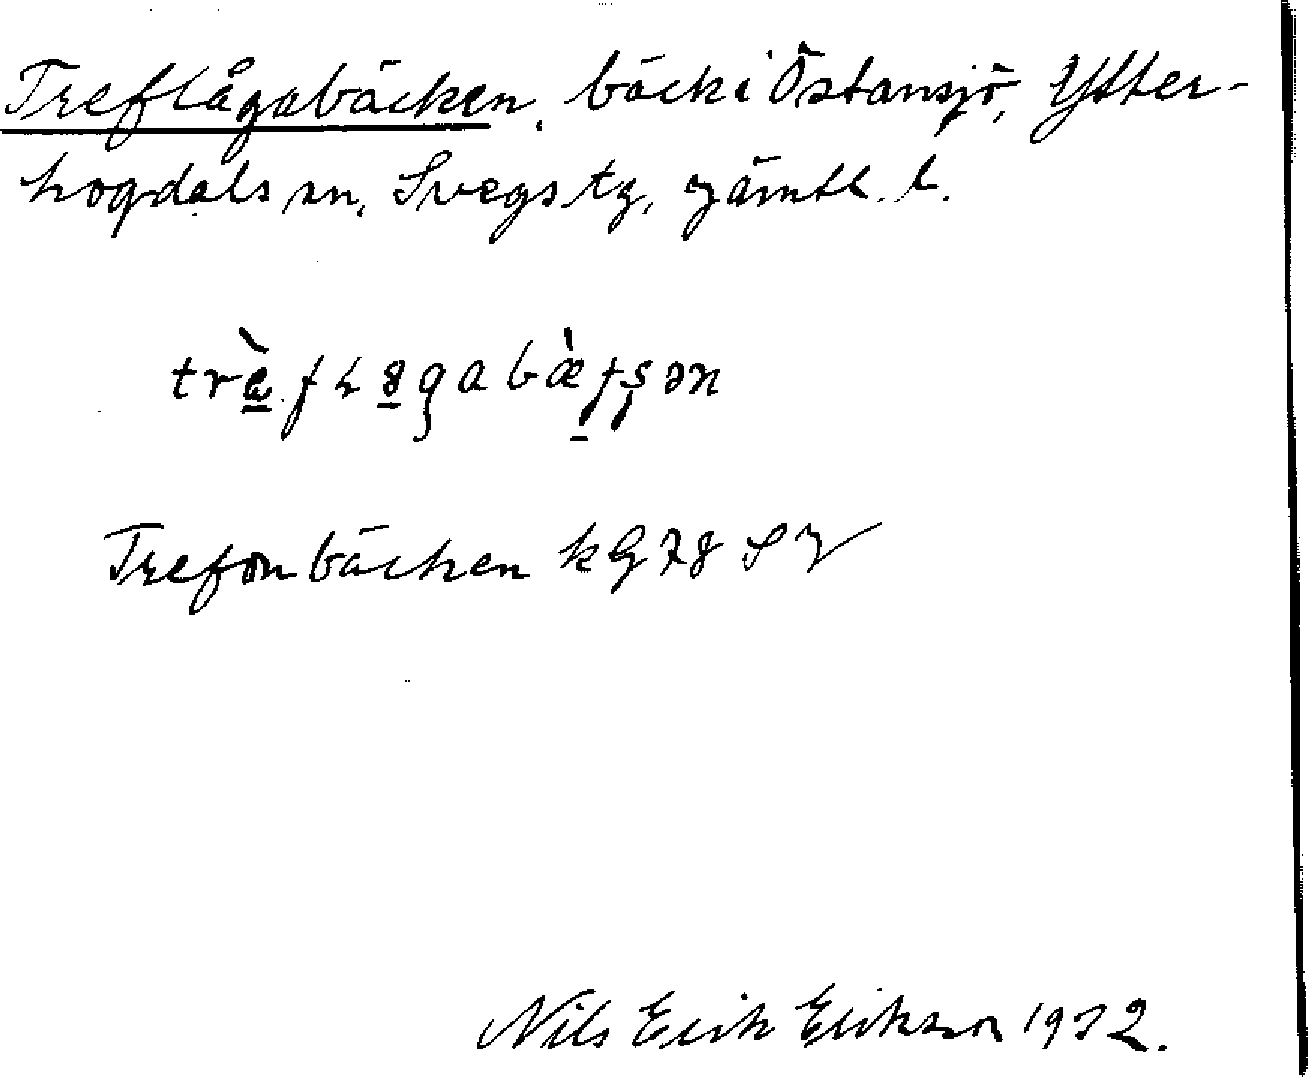 Treflågabäcken, bäck i Östansjö, Ytter-
hogdals sn, Svegs tg, Jämtl. l.
Trefonbäcken kG 78 SV
Nils Erik Erikson 1932.